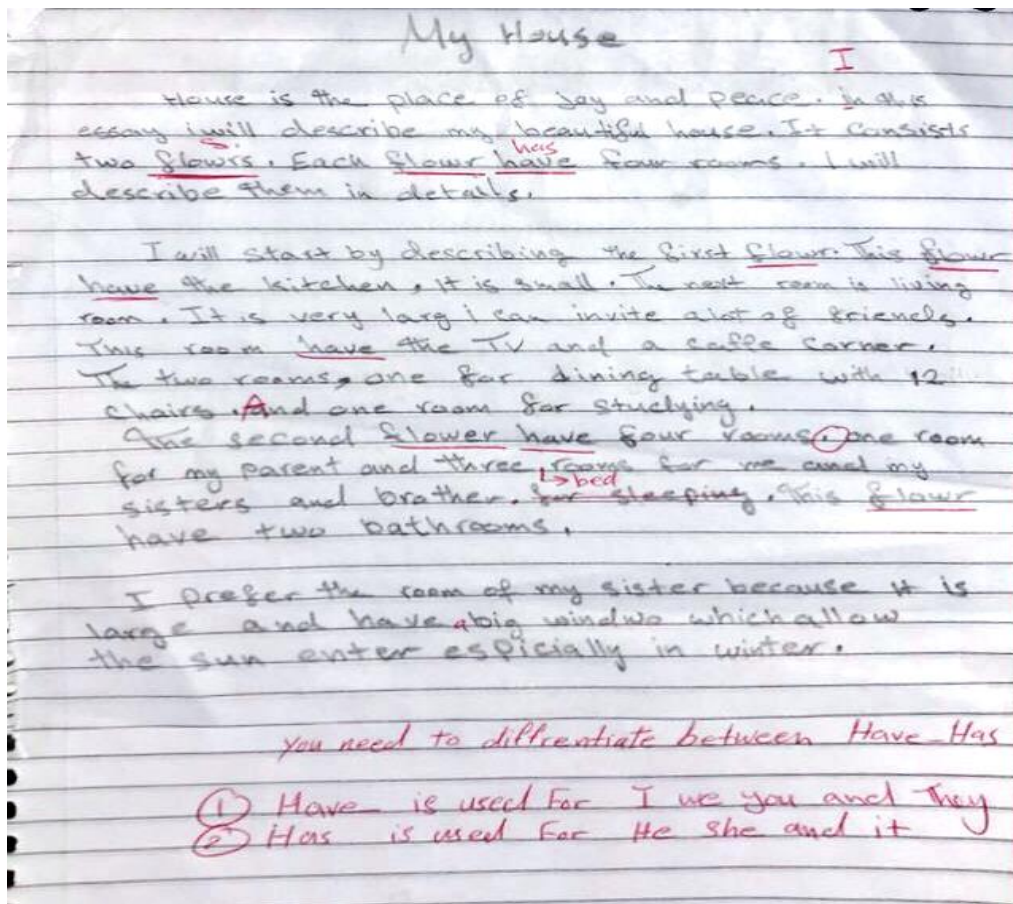 My House
I
House is the place of Joy and peace. in this
essay i will describe my beautiful house. It consists
has
two flowrs. Each flowr have four rooms. I will
describe them in details.
I will start by describing the first flowr. This flowr
have the kitchen, it is small. The next room is living
room. It is very larg i can invite alot of friends.
This room have the TV and a caffe corner.
The two rooms, one for dining table with 12
chairs. And one room for studying.
The second flower have four rooms. one room
for my parent and three rooms for me and my
bed
sisters and brather. for sleeping. This flowr
have two bathrooms.
I prefer the room of my sister because it is
large and have a big windwo which allow
the sun enter espicially in winter.
you need to diffrentiate between Have - Has
① Have is used For I we you and They
② Has is used For He She and it